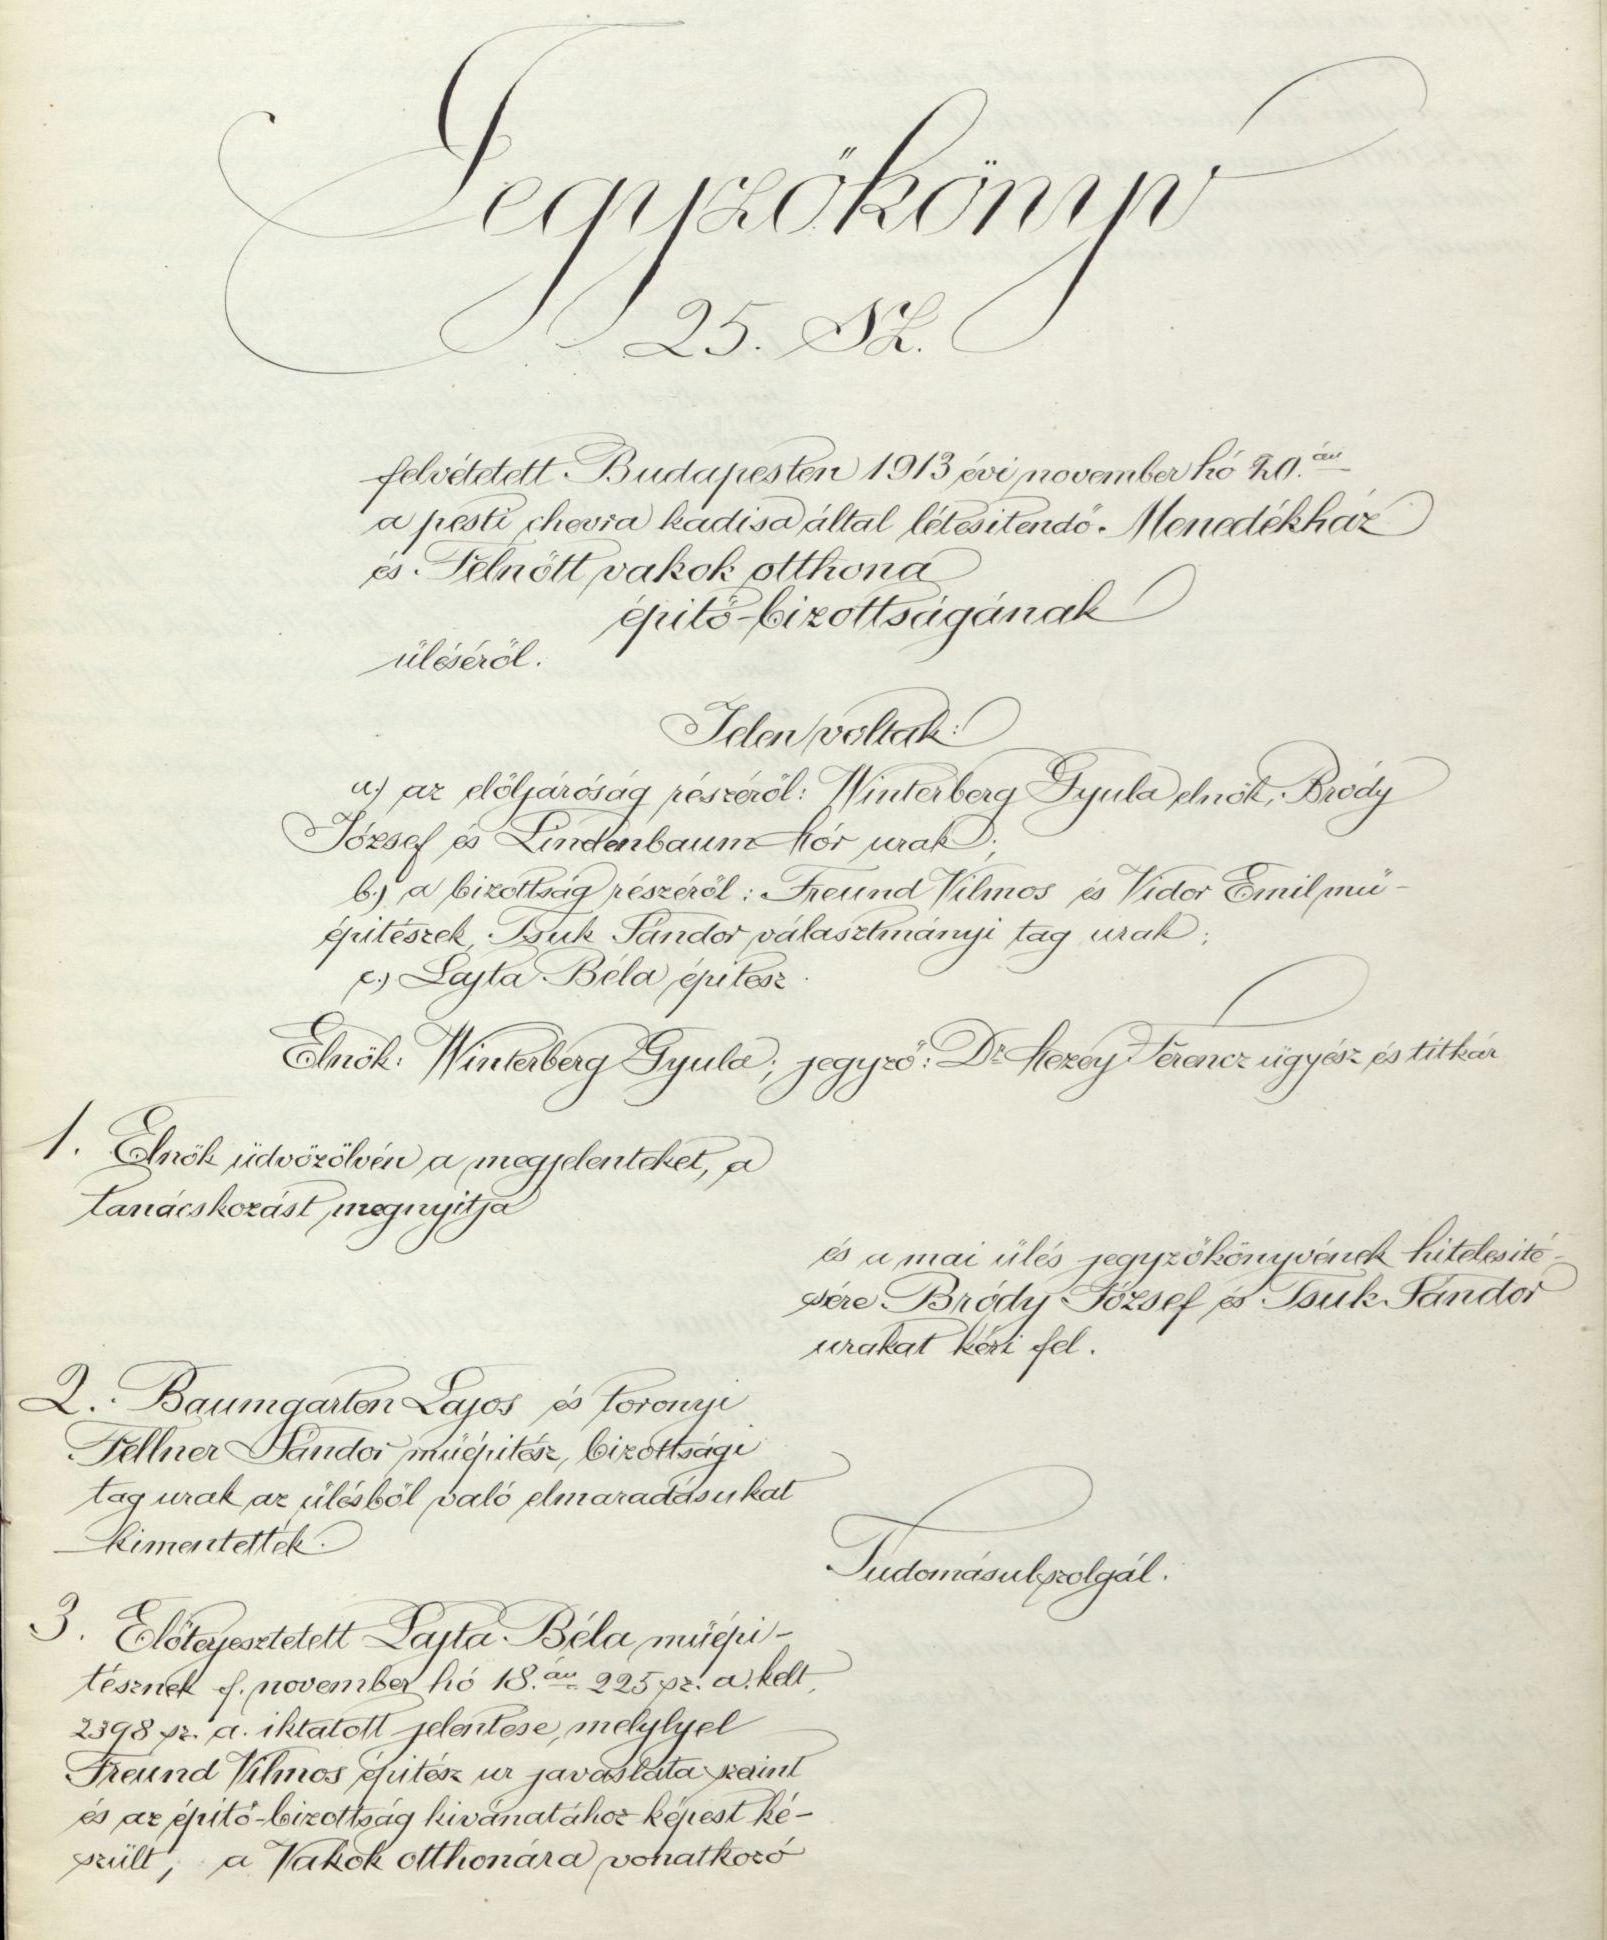 Jegyzőkönyv
25. SZ.
felvétetett Budapesten 1913 évi november hó 20.án
a pesti chevra kadisa által létesitendő Menedékház
és Felnőtt vakok otthona
épitő-bizottságának
üléséről.
Jelen voltak:
a.) az elöljáróság részéről: Winterberg Gyula elnök, Bródy
József és Lindenbaum Mór urak;
b.) a bizottság részéről: Freund Vilmos és Vidor Emil mü-
épitészek, Tsuk Sándor választmányi tag urak;
c.) Lajta Béla épitész.
Elnök: Winterberg Gyula; jegyző: Dr Mezey Ferencz ügyész és titkár
1. Elnök üdvözölvén a megjelenteket, a
tanácskozást megnyitja
és a mai ülés jegyzőkönyvének hitelesité-
sére Bródy József és Tsuk Sándor
urakat kéri fel.
2. Baumgarten Lajos és toronyi
Fellner Sándor müépitész, bizottsági
tag urak az ülésből való elmaradásukat
kimentették.
Tudomásul szolgál.
3. Előterjesztetett Lajta Béla müépi-
tésznek f. november hó 18.án 225 sz. a. kelt,
2398 sz. a. iktatott jelentése, melylyel
Freund Vilmos épitész ur javaslata szerint
és az épitő-bizottság kivánatához képest ké-
szült, a Vakok otthonára vonatkozó